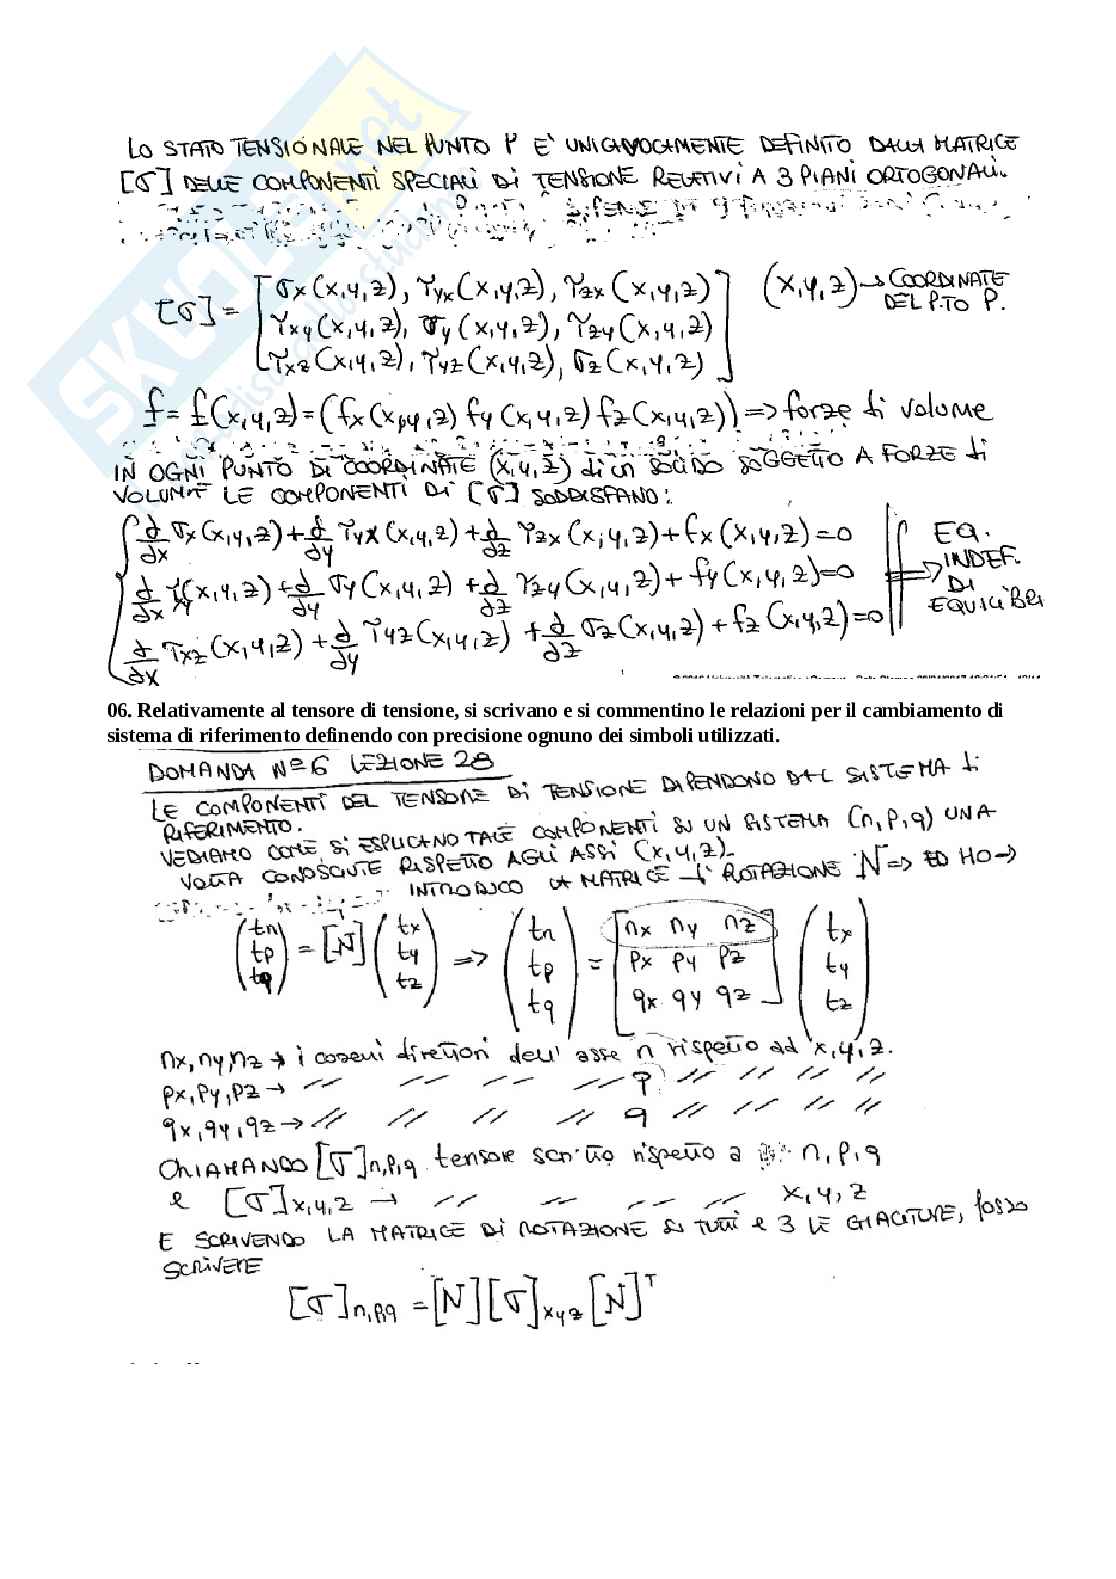 LO STATO TENSIONALE NEL PUNTO P E' UNIVOCAMENTE DEFINITO DALLA MATRICE
[σ] DELLE COMPONENTI SPECIALI DI TENSIONE RELATIVI A 3 PIANI ORTOGONALI.
[σ] = [σx(x,y,z), τyx(x,y,z), τzx(x,y,z)
τxy(x,y,z), σy(x,y,z), τzy(x,y,z)
τxz(x,y,z), τyz(x,y,z), σz(x,y,z)]
(x,y,z) → COORDINATE
DEL P.TO P.
f = f(x,y,z) = (fx(x,y,z) fy(x,y,z) fz(x,y,z)) => forze di volume
IN OGNI PUNTO DI COORDINATE (x,y,z) di un SOLIDO SOGGETTO A FORZE di
VOLUME LE COMPONENTI DI [σ] SODDISFANO:
∂/∂x σx(x,y,z) + ∂/∂y τyx(x,y,z) + ∂/∂z τzx(x,y,z) + fx(x,y,z) = 0
∂/∂x τxy(x,y,z) + ∂/∂y σy(x,y,z) + ∂/∂z τzy(x,y,z) + fy(x,y,z) = 0
∂/∂x τxz(x,y,z) + ∂/∂y τyz(x,y,z) + ∂/∂z σz(x,y,z) + fz(x,y,z) = 0
EQ.
INDEF.
DI
EQUILIBRI
06. Relativamente al tensore di tensione, si scrivano e si commentino le relazioni per il cambiamento di
sistema di riferimento definendo con precisione ognuno dei simboli utilizzati.
DOMANDA N°6 LEZIONE 28
LE COMPONENTI DEL TENSORE DI TENSIONE DIPENDONO DAL SISTEMA di
RIFERIMENTO.
VEDIAMO COME SI ESPLICANO TALE COMPONENTI SU UN SISTEMA (n,p,q) UNA
VOLTA CONOSCIUTE RISPETTO AGLI ASSI (x,y,z).
INTRODUCO LA MATRICE di ROTAZIONE N => ED HO →
(tn tp tq) = [N] (tx ty tz) => (tn tp tq) = [nx ny nz
px py pz
qx qy qz] (tx ty tz)
nx, ny, nz → i coseni direttori dell' asse n rispetto ad x,y,z.
px, py, pz → // // // // p // // // //
qx, qy, qz → // // // // q // // // //
CHIAMANDO [σ]n,p,q tensore scritto rispetto a n,p,q
e [σ]x,y,z → // // // // x,y,z
E SCRIVENDO LA MATRICE DI ROTAZIONE SU TUTTI e 3 LE GIACITURE, posso
SCRIVERE
[σ]n,p,q = [N] [σ]xyz [N]ᵀ
SKUOLA.net